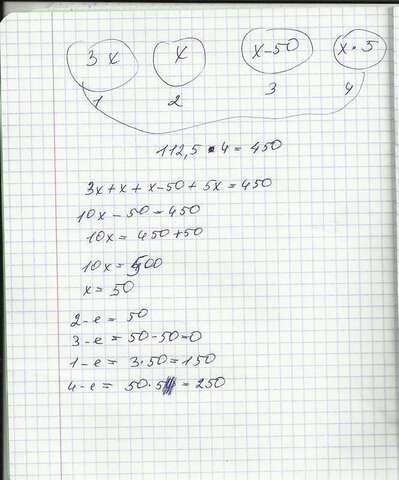 3x x x-50 x·5
1 2 3 4
112,5 · 4 = 450
3x + x + x - 50 + 5x = 450
10x - 50 = 450
10x = 450 + 50
10x = 500
x = 50
2-е = 50
3-е = 50 - 50 = 0
1-е = 3·50 = 150
4-е = 50·5 = 250